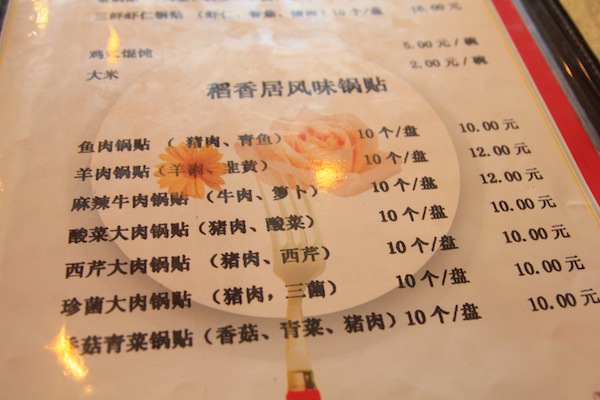 三鲜虾仁锅贴（虾仁、香菇、猪肉）10个/盘 16.00元
鸡汇馄饨 5.00元/碗
大米 2.00元/碗
稻香居风味锅贴
鱼肉锅贴（猪肉、青鱼） 10个/盘 10.00元
羊肉锅贴（羊肉、韭黄） 10个/盘 12.00元
麻辣牛肉锅贴（牛肉、萝卜） 10个/盘 12.00元
酸菜大肉锅贴（猪肉、酸菜） 10个/盘 10.00元
西芹大肉锅贴（猪肉、西芹） 10个/盘 10.00元
珍菌大肉锅贴（猪肉，三菌） 10个/盘 10.00元
香菇青菜锅贴（香菇、青菜、猪肉）10个/盘 10.00元